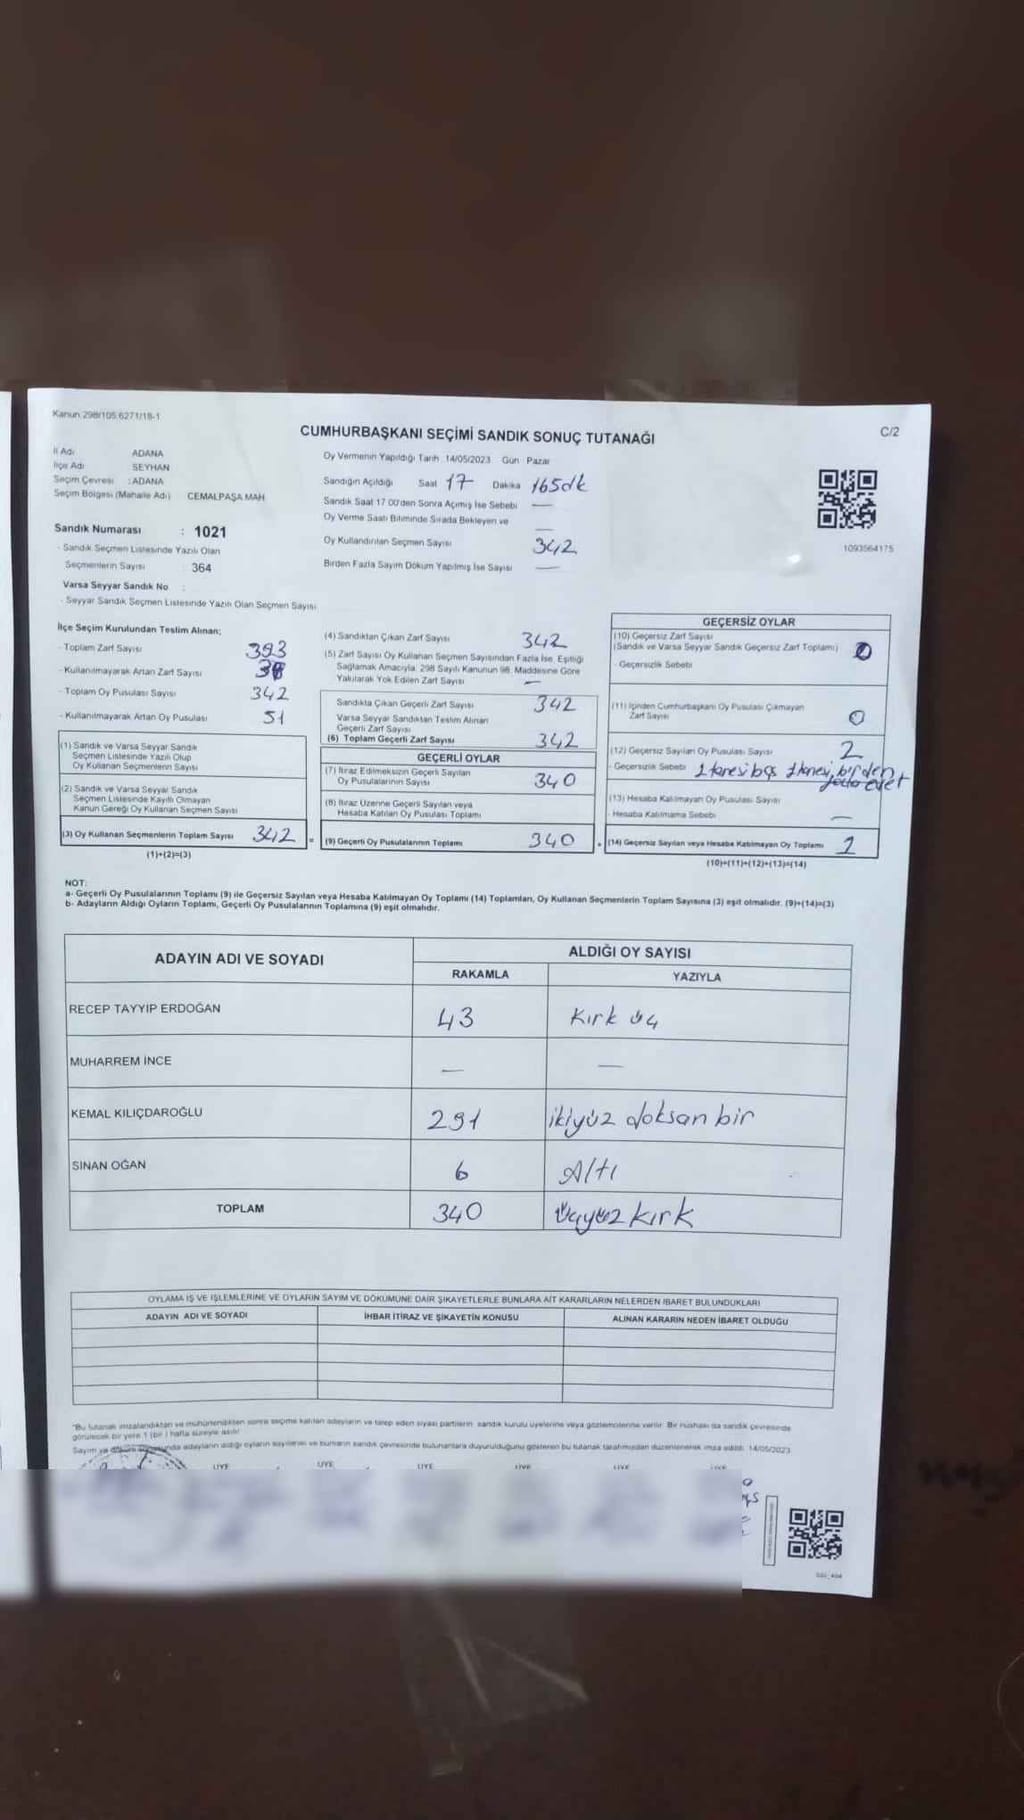 Kanun 298/105 6271/18-1
C/2
CUMHURBAŞKANI SEÇİMİ SANDIK SONUÇ TUTANAĞI
İl Adı : ADANA
İlçe Adı : SEYHAN
Seçim Çevresi : ADANA
Seçim Bölgesi (Mahalle Adı) CEMALPAŞA MAH
Sandık Numarası : 1021
- Sandık Seçmen Listesinde Yazılı Olan
Seçmenlerin Sayısı 364
Varsa Seyyar Sandık No :
- Seyyar Sandık Seçmen Listesinde Yazılı Olan Seçmen Sayısı
Oy Vermenin Yapıldığı Tarih 14/05/2023 Gün Pazar
Sandığın Açıldığı Saat 17 Dakika 165dk
Sandık Saat 17 00'den Sonra Açımış İse Sebebi —
Oy Verme Saati Bitiminde Sırada Bekleyen ve —
Oy Kullandırılan Seçmen Sayısı 342
Birden Fazla Sayım Döküm Yapılmış İse Sayısı —
1093564175
İlçe Seçim Kurulundan Teslim Alınan;
- Toplam Zarf Sayısı 393
- Kullanılmayarak Artan Zarf Sayısı
- Toplam Oy Pusulası Sayısı 342
- Kullanılmayarak Artan Oy Pusulası 51
(1) Sandık ve Varsa Seyyar Sandık
Seçmen Listesinde Yazılı Olup
Oy Kullanan Seçmenlerin Sayısı
(2) Sandık ve Varsa Seyyar Sandık
Seçmen Listesinde Kayıtlı Olmayan
Kanun Gereği Oy Kullanan Seçmen Sayısı
(3) Oy Kullanan Seçmenlerin Toplam Sayısı 342 =
(1)+(2)=(3)
(4) Sandıktan Çıkan Zarf Sayısı 342
(5) Zarf Sayısı Oy Kullanan Seçmen Sayısından Fazla İse, Eşitliği
Sağlamak Amacıyla, 298 Sayılı Kanunun 98. Maddesine Göre
Yakılarak Yok Edilen Zarf Sayısı —
Sandıkta Çıkan Geçerli Zarf Sayısı 342
Varsa Seyyar Sandıktan Teslim Alınan
Geçerli Zarf Sayısı
(6) Toplam Geçerli Zarf Sayısı 342
GEÇERLİ OYLAR
(7) İtiraz Edilmeksizin Geçerli Sayılan
Oy Pusulalarının Sayısı 340
(8) İtiraz Üzerine Geçerli Sayılan veya
Hesaba Katılan Oy Pusulası Toplamı
(9) Geçerli Oy Pusulalarının Toplamı 340 +
GEÇERSİZ OYLAR
(10) Geçersiz Zarf Sayısı
(Sandık ve Varsa Seyyar Sandık Geçersiz Zarf Toplamı) 0
- Geçersizlik Sebebi
(11) İçinden Cumhurbaşkanı Oy Pusulası Çıkmayan
Zarf Sayısı 0
(12) Geçersiz Sayılan Oy Pusulası Sayısı 2
- Geçersizlik Sebebi 1 tanesi boş 1 tanesi birden evet
(13) Hesaba Katılmayan Oy Pusulası Sayısı —
- Hesaba Katılmama Sebebi
(14) Geçersiz Sayılan veya Hesaba Katılmayan Oy Toplamı 2
(10)+(11)+(12)+(13)=(14)
NOT:
a- Geçerli Oy Pusulalarının Toplamı (9) ile Geçersiz Sayılan veya Hesaba Katılmayan Oy Toplamı (14) Toplamları, Oy Kullanan Seçmenlerin Toplam Sayısına (3) eşit olmalıdır. (9)+(14)=(3)
b- Adayların Aldığı Oyların Toplamı, Geçerli Oy Pusulalarının Toplamına (9) eşit olmalıdır.
ADAYIN ADI VE SOYADI
ALDIĞI OY SAYISI
RAKAMLA YAZIYLA
RECEP TAYYIP ERDOĞAN 43 Kırk üç
MUHARREM İNCE — —
KEMAL KILIÇDAROĞLU 291 ikiyüz doksan bir
SİNAN OĞAN 6 Altı
TOPLAM 340 Üçyüz kırk
OYLAMA İŞ VE İŞLEMLERİNE VE OYLARIN SAYIM VE DÖKÜMÜNE DAİR ŞİKAYETLERLE BUNLARA AİT KARARLARIN NELERDEN İBARET BULUNDUKLARI
ADAYIN ADI VE SOYADI İHBAR İTİRAZ VE ŞİKAYETİN KONUSU ALINAN KARARIN NEDEN İBARET OLDUĞU
*Bu tutanak imzalandıktan ve mühürlendikten sonra seçime katılan adayların ve talep eden siyasi partilerin sandık kurulu üyelerine veya gözlemcilerine verilir. Bir nüshası da sandık çevresinde
görülecek bir yere 1 (bir ) hafta süreyle asılır
Sayım ve döküm sonunda adayların aldığı oyların sayılarını ve bunların sandık çevresinde bulunanlara duyurulduğunu gösteren bu tutanak tarafımızdan düzenlenerek imza edildi. 14/05/2023
ÜYE ÜYE ÜYE ÜYE ÜYE